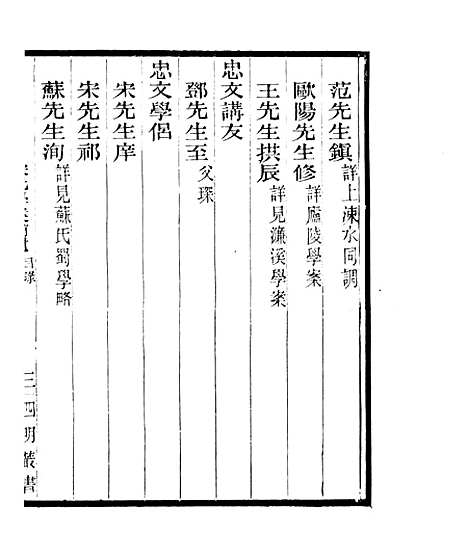 范先生鎮 詳上涑水同調
歐陽先生修 詳廬陵學案
王先生拱辰 詳見濂溪學案
忠文講友
鄧先生至 父琛
忠文學侶
宋先生庠
宋先生祁
蘇先生洵 詳見蘇氏蜀學略
目錄 三 四明叢書